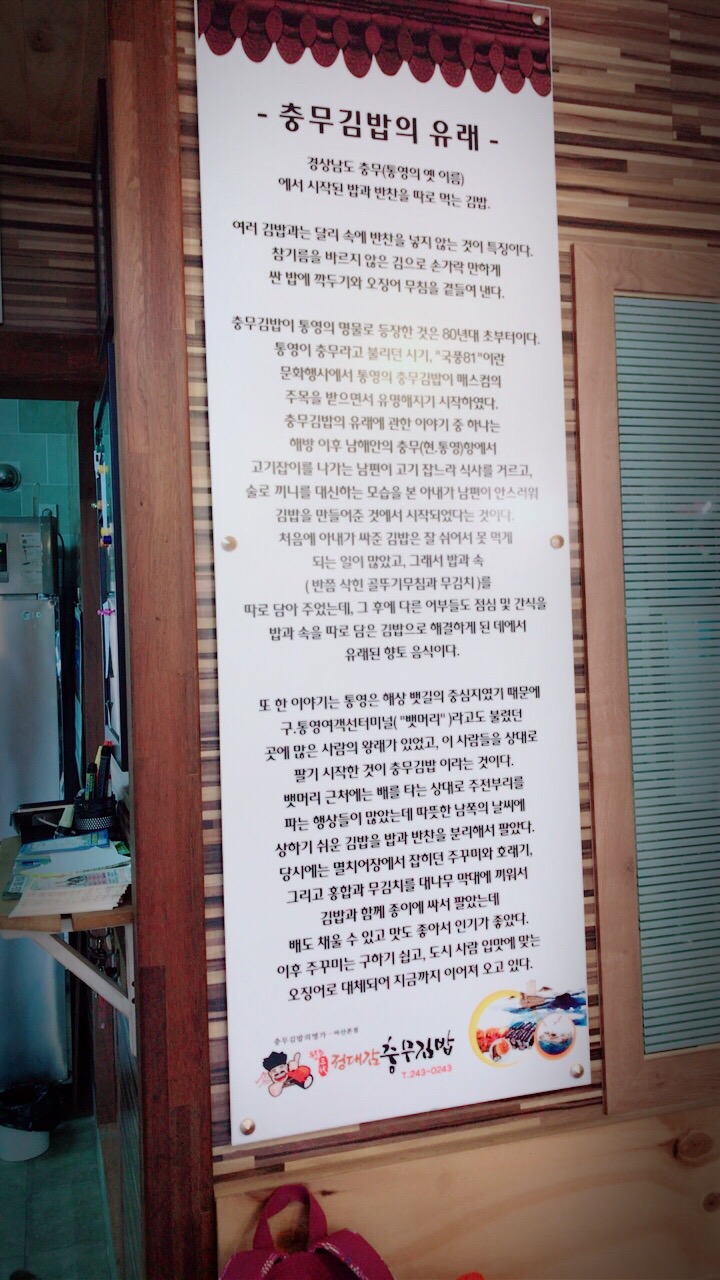 - 충무김밥의 유래 -
경상남도 충무(통영의 옛 이름)
에서 시작된 밥과 반찬을 따로 먹는 김밥.
여러 김밥과는 달리 속에 반찬을 넣지 않는 것이 특징이다.
참기름을 바르지 않은 김으로 손가락 만하게
싼 밥에 깍두기와 오징어 무침을 곁들여 낸다.
충무김밥이 통영의 명물로 등장한 것은 80년대 초부터이다.
통영이 충무라고 불리던 시기, "국풍81"이란
문화행사에서 통영의 충무김밥이 매스컴의
주목을 받으면서 유명해지기 시작하였다.
충무김밥의 유래에 관한 이야기 중 하나는
해방 이후 남해안의 충무(현.통영)항에서
고기잡이를 나가는 남편이 고기 잡느라 식사를 거르고,
술로 끼니를 대신하는 모습을 본 아내가 남편이 안스러워
김밥을 만들어준 것에서 시작되었다는 것이다.
처음에 아내가 싸준 김밥은 잘 쉬어서 못 먹게
되는 일이 많았고, 그래서 밥과 속
( 반쯤 삭힌 꼴뚜기무침과 무김치 )를
따로 담아 주었는데, 그 후에 다른 어부들도 점심 및 간식을
밥과 속을 따로 담은 김밥으로 해결하게 된 데에서
유래된 향토 음식이다.
또 한 이야기는 통영은 해상 뱃길의 중심지였기 때문에
구.통영여객선터미널( "뱃머리" )라고도 불렸던
곳에 많은 사람의 왕래가 있었고, 이 사람들을 상대로
팔기 시작한 것이 충무김밥 이라는 것이다.
뱃머리 근처에는 배를 타는 상대로 주전부리를
파는 행상들이 많았는데 따뜻한 남쪽의 날씨에
상하기 쉬운 김밥을 밥과 반찬을 분리해서 팔았다.
당시에는 멸치어장에서 잡히던 주꾸미와 호래기,
그리고 홍합과 무김치를 대나무 막대에 끼워서
김밥과 함께 종이에 싸서 팔았는데
배도 채울 수 있고 맛도 좋아서 인기가 좋았다.
이후 주꾸미는 구하기 쉽고, 도시 사람 입맛에 맞는
오징어로 대체되어 지금까지 이어져 오고 있다.
충무김밥의명가 - 마산본점
정대감 충무김밥
T.243-0243